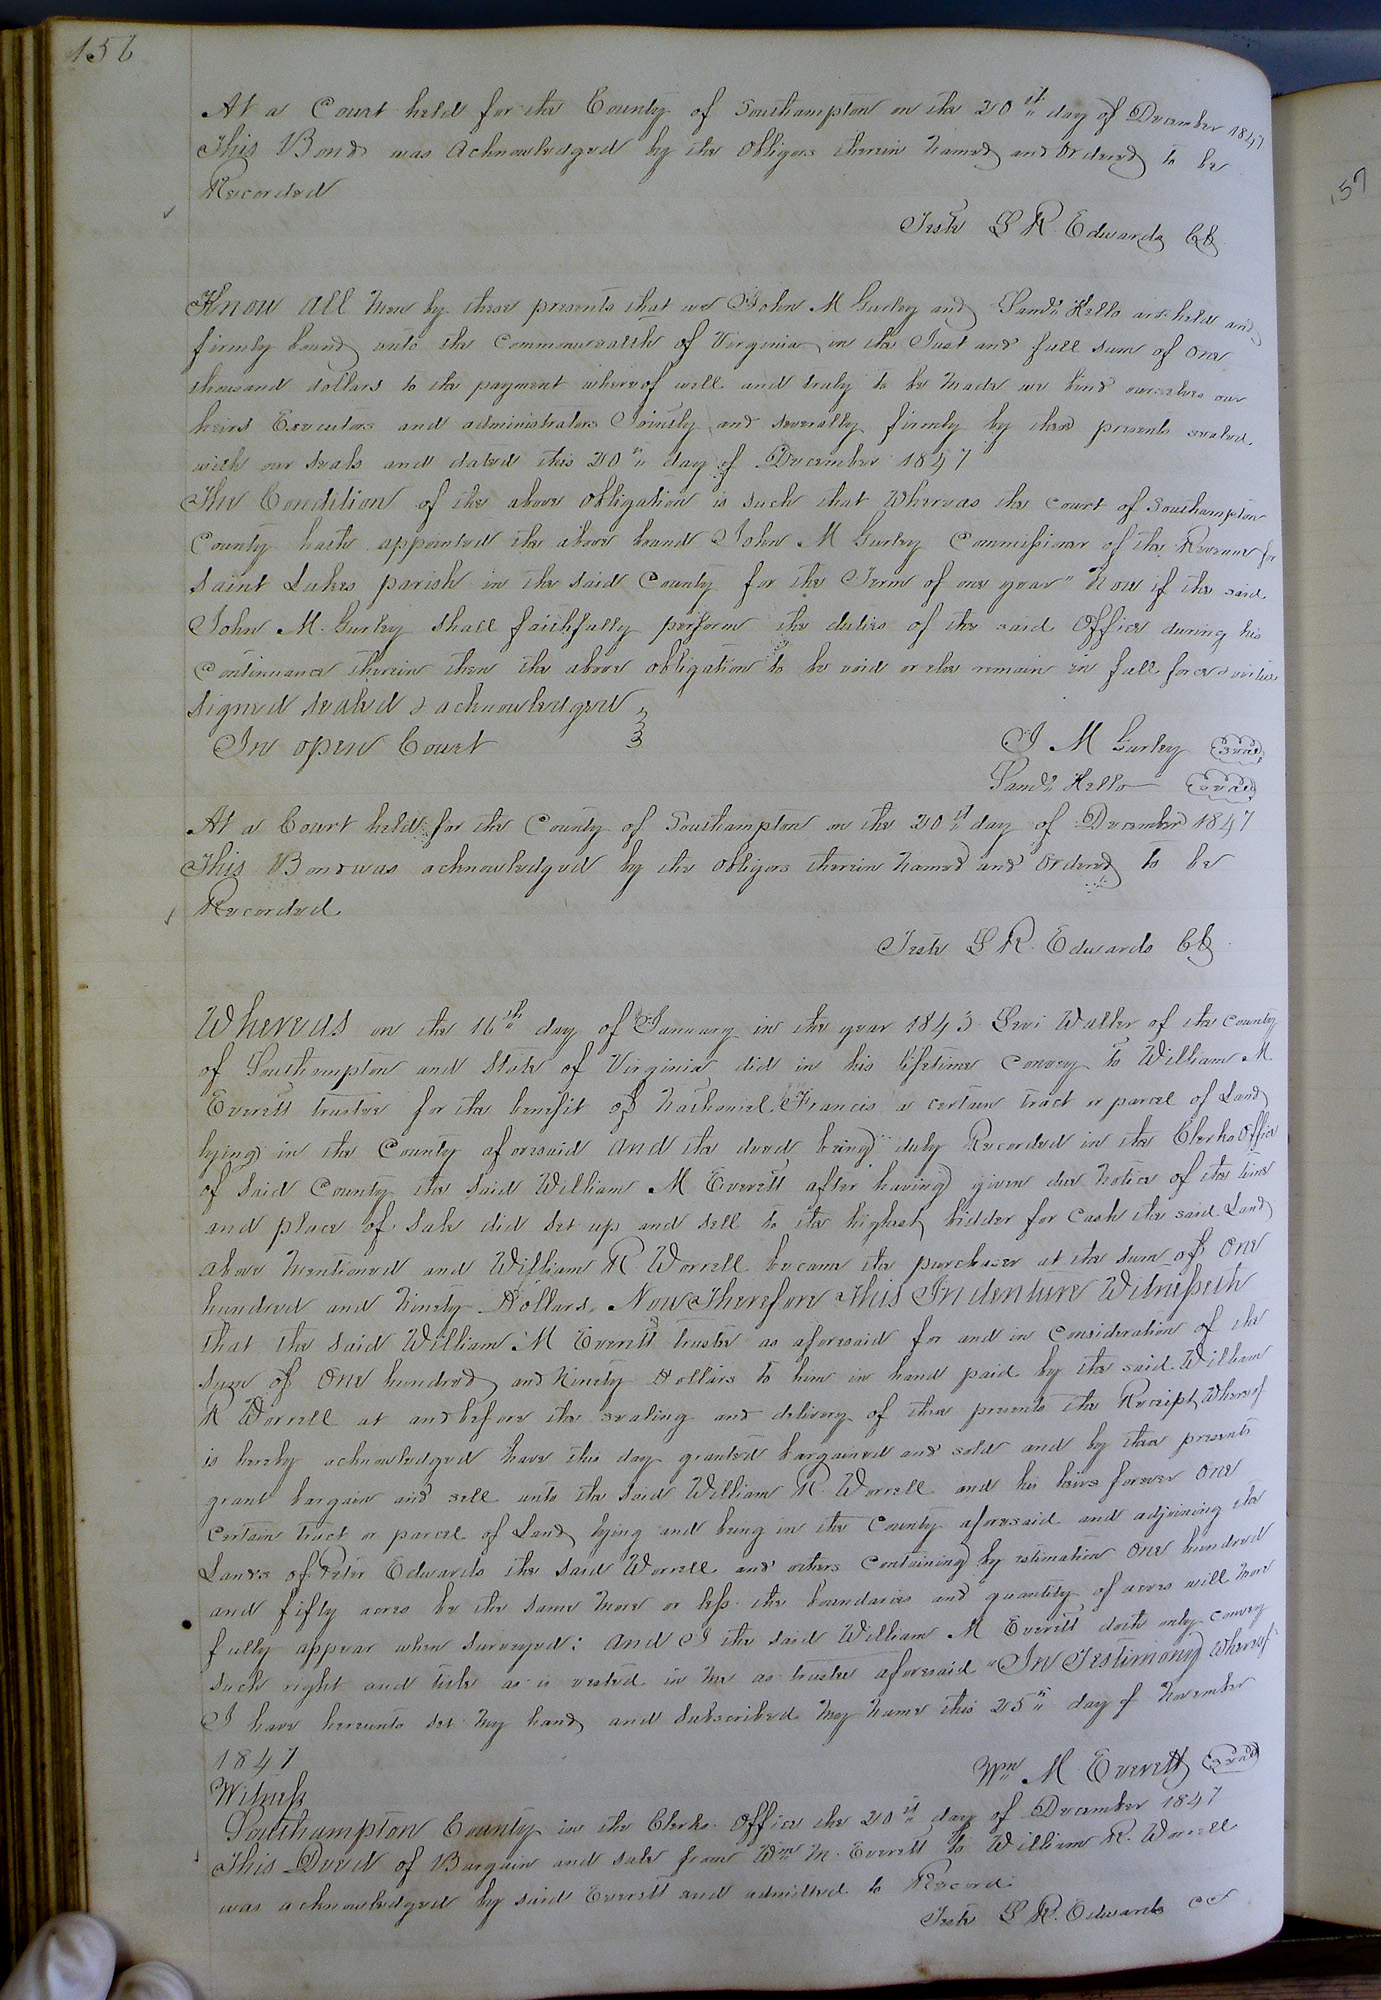 156
At a Court held for the County of Southampton on the 20th day of December 1847
This Bond was Acknowledged by the Obligors therein Named and Ordered to be
Recorded
Teste L R Edwards Clk
157
Know All Men by these presents that we John M Gurley and Saml Kello are held and
firmly bound unto the Commonwealth of Virginia in the Just and full sum of One
thousand dollars to the payment whereof well and truly to be Made we bind ourselves our
heirs Executors and administrators Jointly and severally firmly by these presents sealed
with our seals and dated this 20th day of December 1847
The Condition of the above Obligation is such that Whereas the Court of Southampton
County hath appointed the above bound John M Gurley Commissioner of the Revenue for
Saint Lukes parish in the said County for the Term of one year" Now if the said
John M. Gurley shall faithfully perform the duties of the said Office during his
Continuance therein then the above Obligation to be void or else remain in full force & virtue
Signed sealed & acknowledged
In open Court
J M Gurley Seal
Kello Seal
At a Court held for the County of Southampton on the 20th day of December 1847
This Bond was acknowledged by the Obligors therein Named and Ordered to be
Recorded
Teste L R. Edwards Clk
Whereas on the 16th day of January in the year 1843 Levi Waller of the County
of Southampton and State of Virginia did in his lifetime Convey to William M
Everett trustee for the benefit of Nathaniel Francis a certain tract or parcel of Land
lying in the County aforesaid And the deed being duly Recorded in the Clerks Office
of Said County the Said William M Everett after having given due Notice of the time
and place of Sale did set up and sell to the highest bidder for Cash the said Land
above Mentioned and William R Worrell became the purchaser at the sum of One
hundred and Ninety Dollars. Now Therefore This Indenture Witnesseth
that the said William M Everett trustee as aforesaid for and in Consideration of the
sum of One hundred and Ninety Dollars to him in hand paid by the said William
R Worrell at and before the sealing and delivery of these presents the Receipt Whereof
is hereby acknowledged have this day granted bargained and sold and by these presents
grant bargain and sell unto the said William R. Worrell and his heirs forever One
Certain tract or parcel of Land lying and being in the County aforesaid and adjoining the
Lands of Peter Edwards the said Worrell and others Containing by estimation One hundred
and fifty acres be the same More or less the boundaries and quantity of acres will More
fully appear when surveyed: And I the said William M Everett doth only Convey
such right and title as is vested in Me as trustee aforesaid "In Testimony Whereof
I have hereunto set My hand and Subscribed My Name this 25th day of November
1847
Wm M Everett Seal
Witness
Southampton County in the Clerks Office the 20th day of December 1847
This Deed of Bargain and sale from Wm M. Everett to William R. Worrell
was acknowledged by said Everett and admitted to Record.
Teste L R. Edwards CC